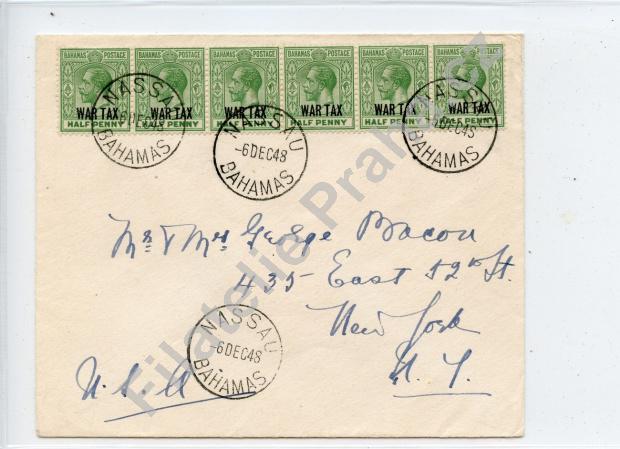 BAHAMAS POSTAGE BAHAMAS POSTAGE BAHAMAS POSTAGE BAHAMAS POSTAGE BAHAMAS POSTAGE BAHAMAS POSTAGE
WAR TAX WAR TAX WAR TAX WAR TAX WAR TAX WAR TAX
HALF PENNY HALF PENNY HALF PENNY HALF PENNY HALF PENNY HALF PENNY
NASSAU
6DEC48
BAHAMAS
NASSAU
-6DEC48
BAHAMAS
NASSAU
6DEC48
BAHAMAS
Mr & Mrs George Bacon
435 East 52nd St.
New York
N.Y.
U.S.A
NASSAU
-6DEC48
BAHAMAS
Filatelie Praha.cz